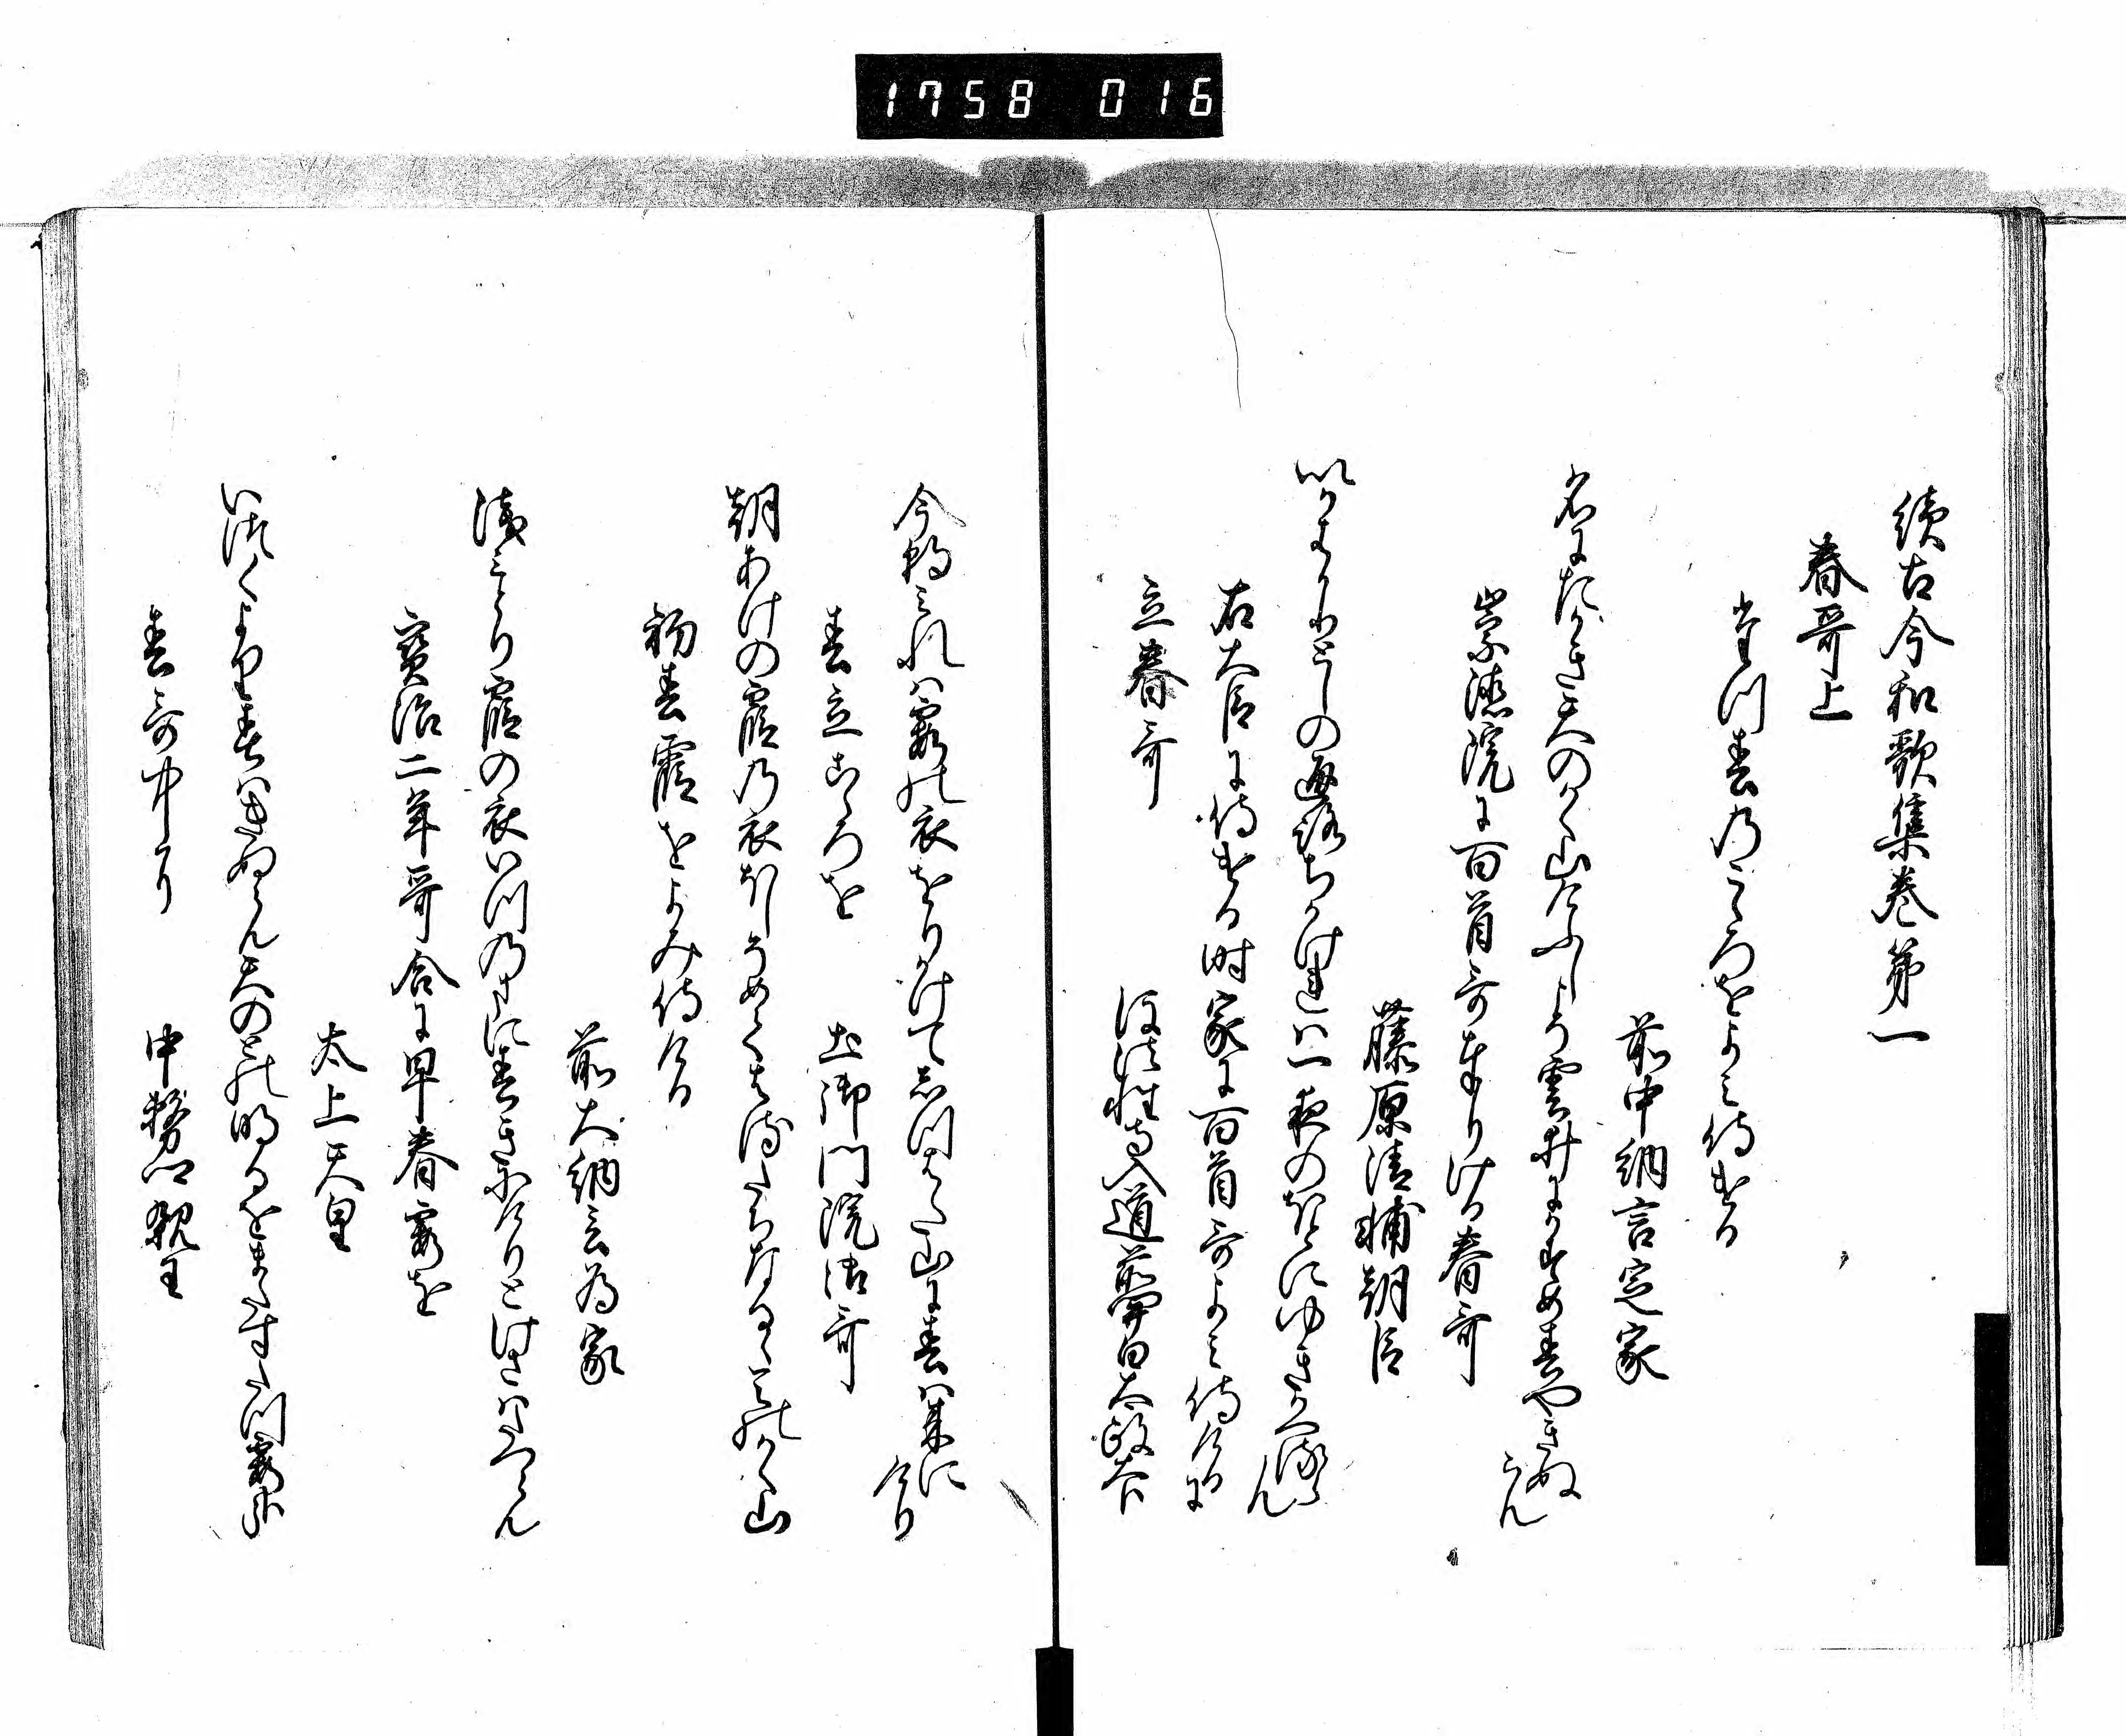 1758 016
續古今和歌集巻第一
春哥上
春たつ春のこゝろをよみ侍ける
前中納言定家
名にたかき天のかく山けふしこそ雲井にかすめ春やきぬ
らん
崇徳院に百首哥奉りける春哥
藤原清輔朝臣
いかはかりとしの通路ちかけれは一夜のほとにゆきかへる
らん
右大臣に侍ける時家に百首哥よみ侍けるに
立春哥
後法性寺入道前関白太政大臣
今朝みれは霞の衣をりかけてしつはた山に春は来に
けり
春立こゝろを
土御門院御哥
朝あけの霞の衣ほしそめて春たちなるゝ天のかく山
初春霞をよみ侍ける
前大納言為家
浅みとり霞の衣いつのまに春きにけりとけさはたつらん
寶治二年哥合に早春霞を
太上天皇
いつくより春はきぬらん天の戸の明るをまたすたつ霞哉
春哥中に
中務卿親王